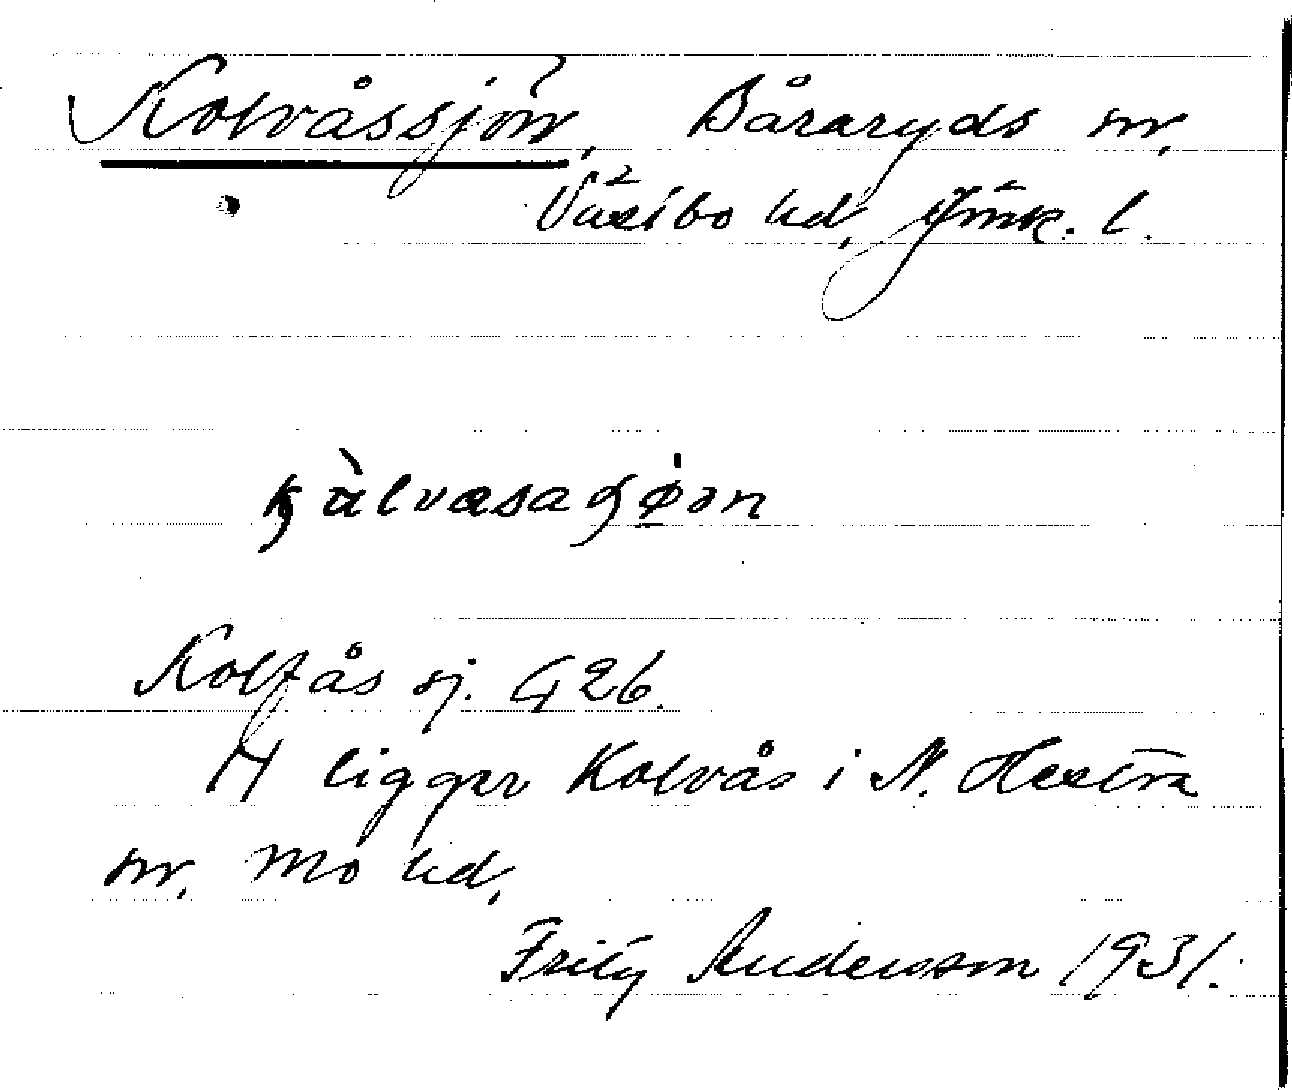 Kolvåssjön, Båraryds sn,
Västbo hd, Jönk. l.
kàlvasaʃø̱ən
Kolfås sj. G 26.
H ligger Kolvås i N. Hestra
sn, Mo hd,
Fritz Andersson 1931.